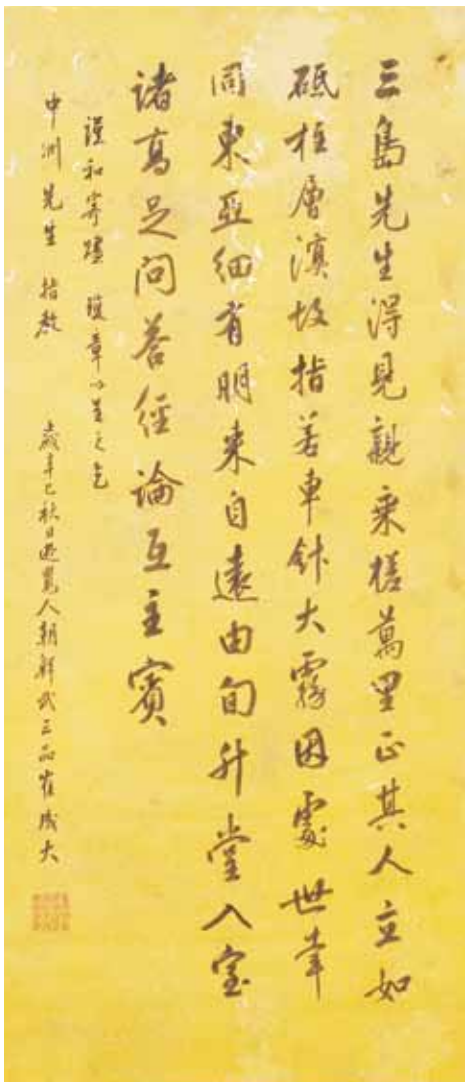 三島先生得見親乘槎萬里正其人立如
砥柱層指若車針大霧因處世幸
同東亞細有朋來自遠由旬升堂入室
諸高足問答經論互主賓
謹和寄贈瓊章以呈之乞
中洲先生 指教
歲辛巳秋日遊覽人朝鮮武三品崔成大